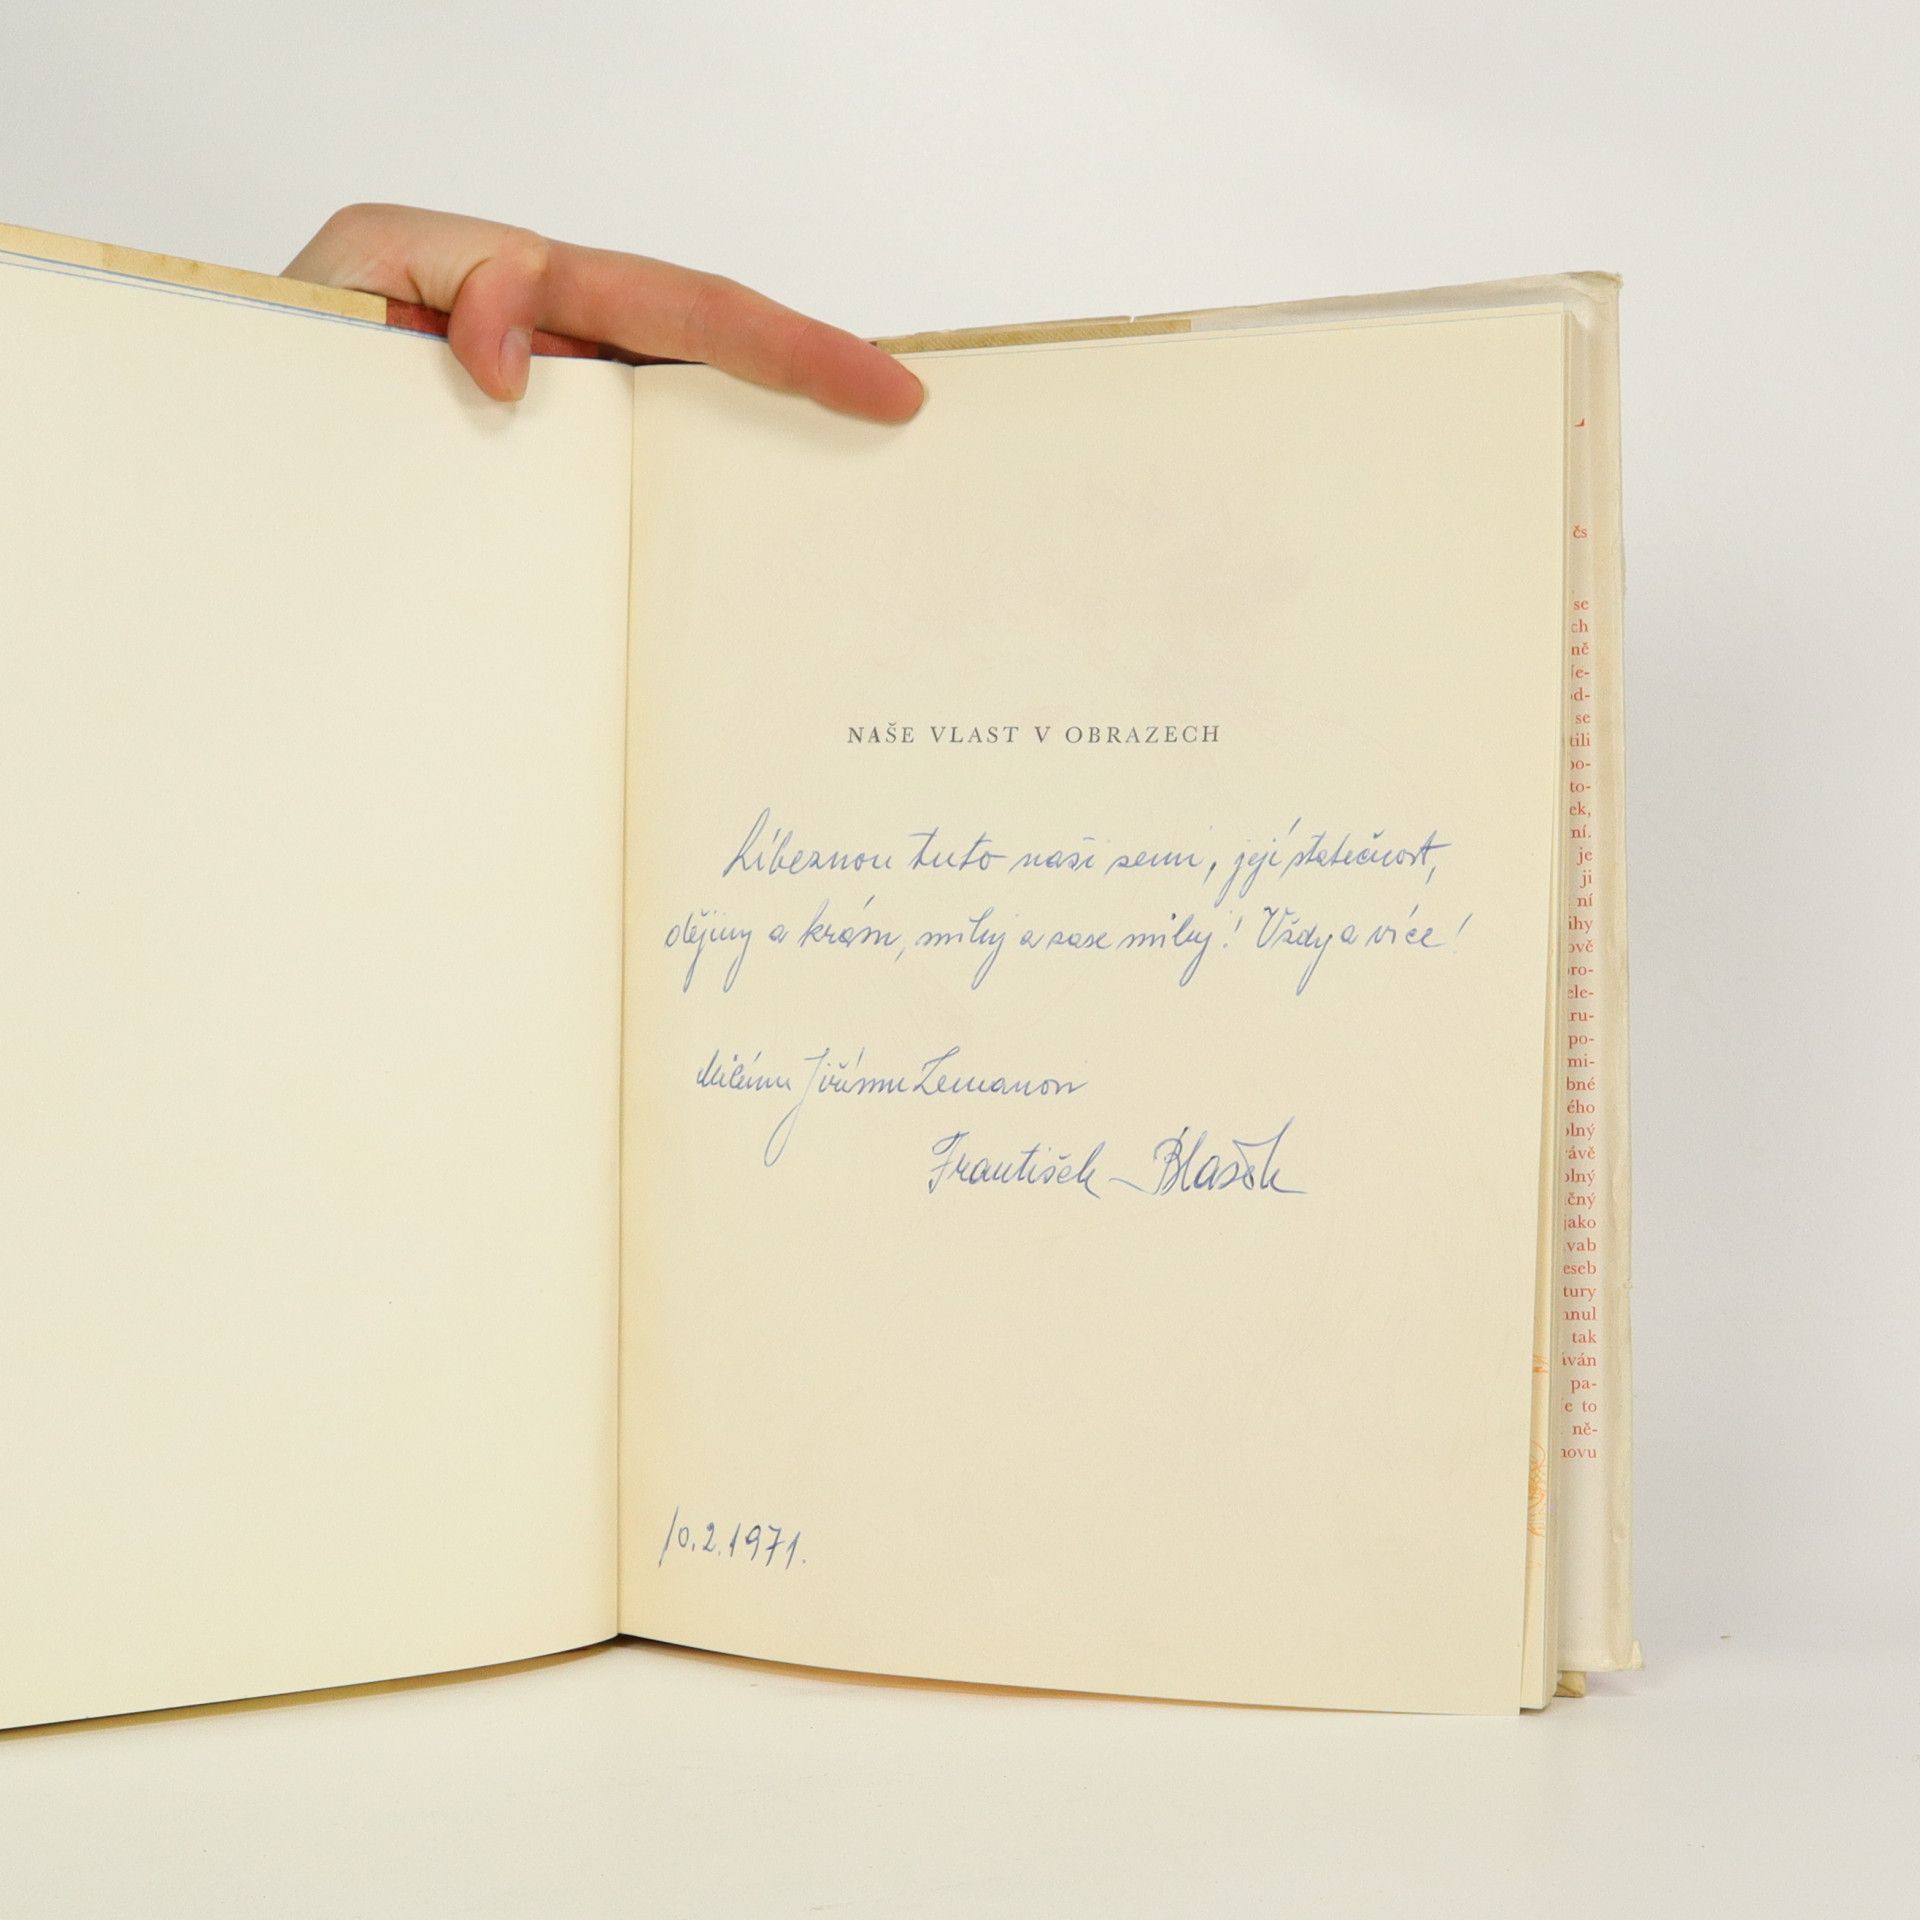 NAŠE VLAST V OBRAZECH
Líbeznou tuto naši zemi, její statečnost,
dějiny a krásu, miluj a zase miluj! Vždy a více!
Milému Jiřímu Zemanovi
František Blašek
10.2.1971.
čs
se
ch
ně
se
tili
po-
to-
ek,
ní.
je
ji
ní
ihy
ově
pro-
ele-
ru-
po-
mi-
bné
ého
plný
plný
čný
jako
vab
eseb
tury
nnul
tak
áván
pa-
e to
ně-
novu